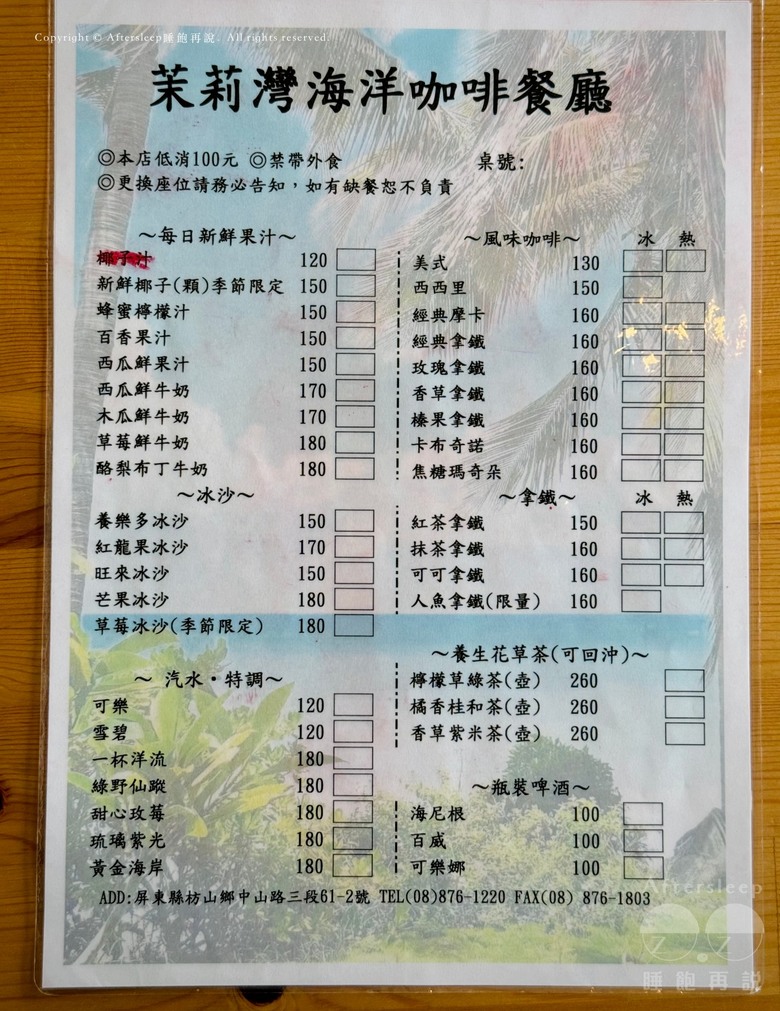 Copyright © Aftersleep睡飽再說. All rights reserved.
茉莉灣海洋咖啡餐廳
◎本店低消100元 ◎禁帶外食
桌號:
◎更換座位請務必告知，如有缺餐恕不負責
～每日新鮮果汁～
椰子汁 120
新鮮椰子(顆)季節限定 150
蜂蜜檸檬汁 150
百香果汁 150
西瓜鮮果汁 150
西瓜鮮牛奶 170
木瓜鮮牛奶 170
草莓鮮牛奶 180
酪梨布丁牛奶 180
～冰沙～
養樂多冰沙 150
紅龍果冰沙 170
旺來冰沙 150
芒果冰沙 180
草莓冰沙(季節限定) 180
～ 汽水·特調～
可樂 120
雪碧 120
一杯洋流 180
綠野仙蹤 180
甜心玫莓 180
琉璃紫光 180
黃金海岸 180
～風味咖啡～ 冰 熱
美式 130
西西里 150
經典摩卡 160
經典拿鐵 160
玫瑰拿鐵 160
香草拿鐵 160
榛果拿鐵 160
卡布奇諾 160
焦糖瑪奇朵 160
～拿鐵～ 冰 熱
紅茶拿鐵 150
抹茶拿鐵 160
可可拿鐵 160
人魚拿鐵(限量) 160
～養生花草茶(可回沖)～
檸檬草綠茶(壺) 260
橘香桂和茶(壺) 260
香草紫米茶(壺) 260
～瓶裝啤酒～
海尼根 100
百威 100
可樂娜 100
ADD:屏東縣枋山鄉中山路三段61-2號 TEL(08)876-1220 FAX(08) 876-1803
Aftersleep
睡飽再說